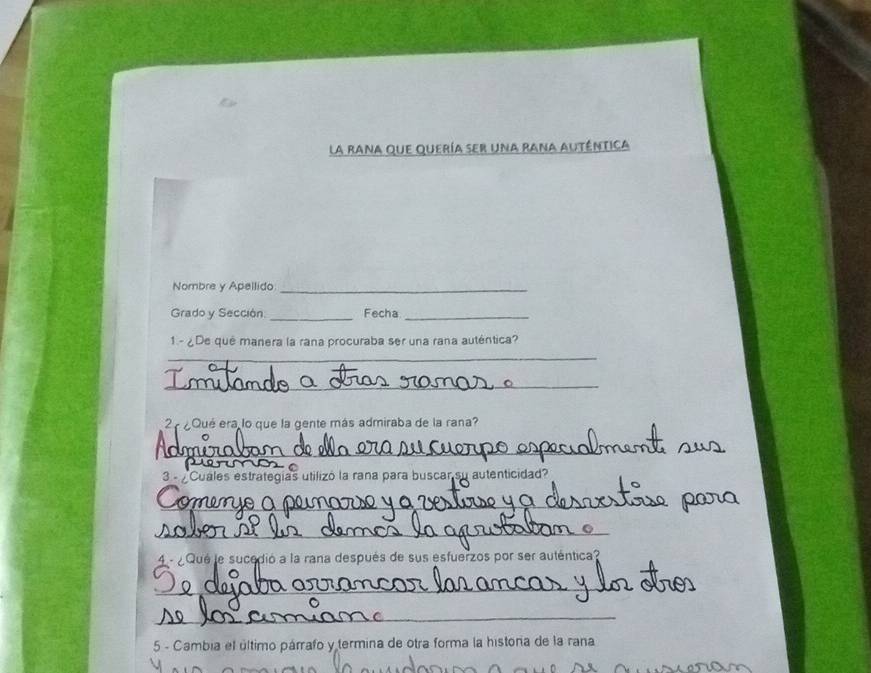 LA RANA QUE QUERÍA SER UNA RANA AUTÉNTICA
Nombre y Apellido:
Grado y Sección: Fecha:
1.- ¿De qué manera la rana procuraba ser una rana auténtica?
Imitando a otras ranas.
2.- ¿Qué era lo que la gente más admiraba de la rana?
Admiraban de ella era su cuerpo especialmente sus
piernas.
3.- ¿Cuáles estrategias utilizó la rana para buscar su autenticidad?
Comenzo a peinarse y a vestirse y a desvestirse para
saber si los demás la aprobaban.
4.- ¿Qué le sucedió a la rana después de sus esfuerzos por ser auténtica?
Se dejaba arrancar las ancas y los otros
se los comian.
5.- Cambia el último párrafo y termina de otra forma la historia de la rana